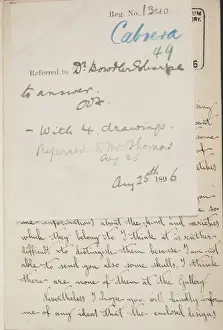 Reg. No. 1340
Cabrera
49
UM
RY.
6
Referred to Dr. Bowdler Sharpe
to answer.
- With 4 drawings.
Referred to Mr Thomas
Aug 25
Aug 25th 1896
my
not
some
of
so
me information about the kind and varieties
which they belong to. I think it is rather
difficult to distinguish them because I am not
able to send you also some skulls, I think
there are none of them at the Gallery.
Nevertheless I hope you will kindly inform
me of any ideal that the designs